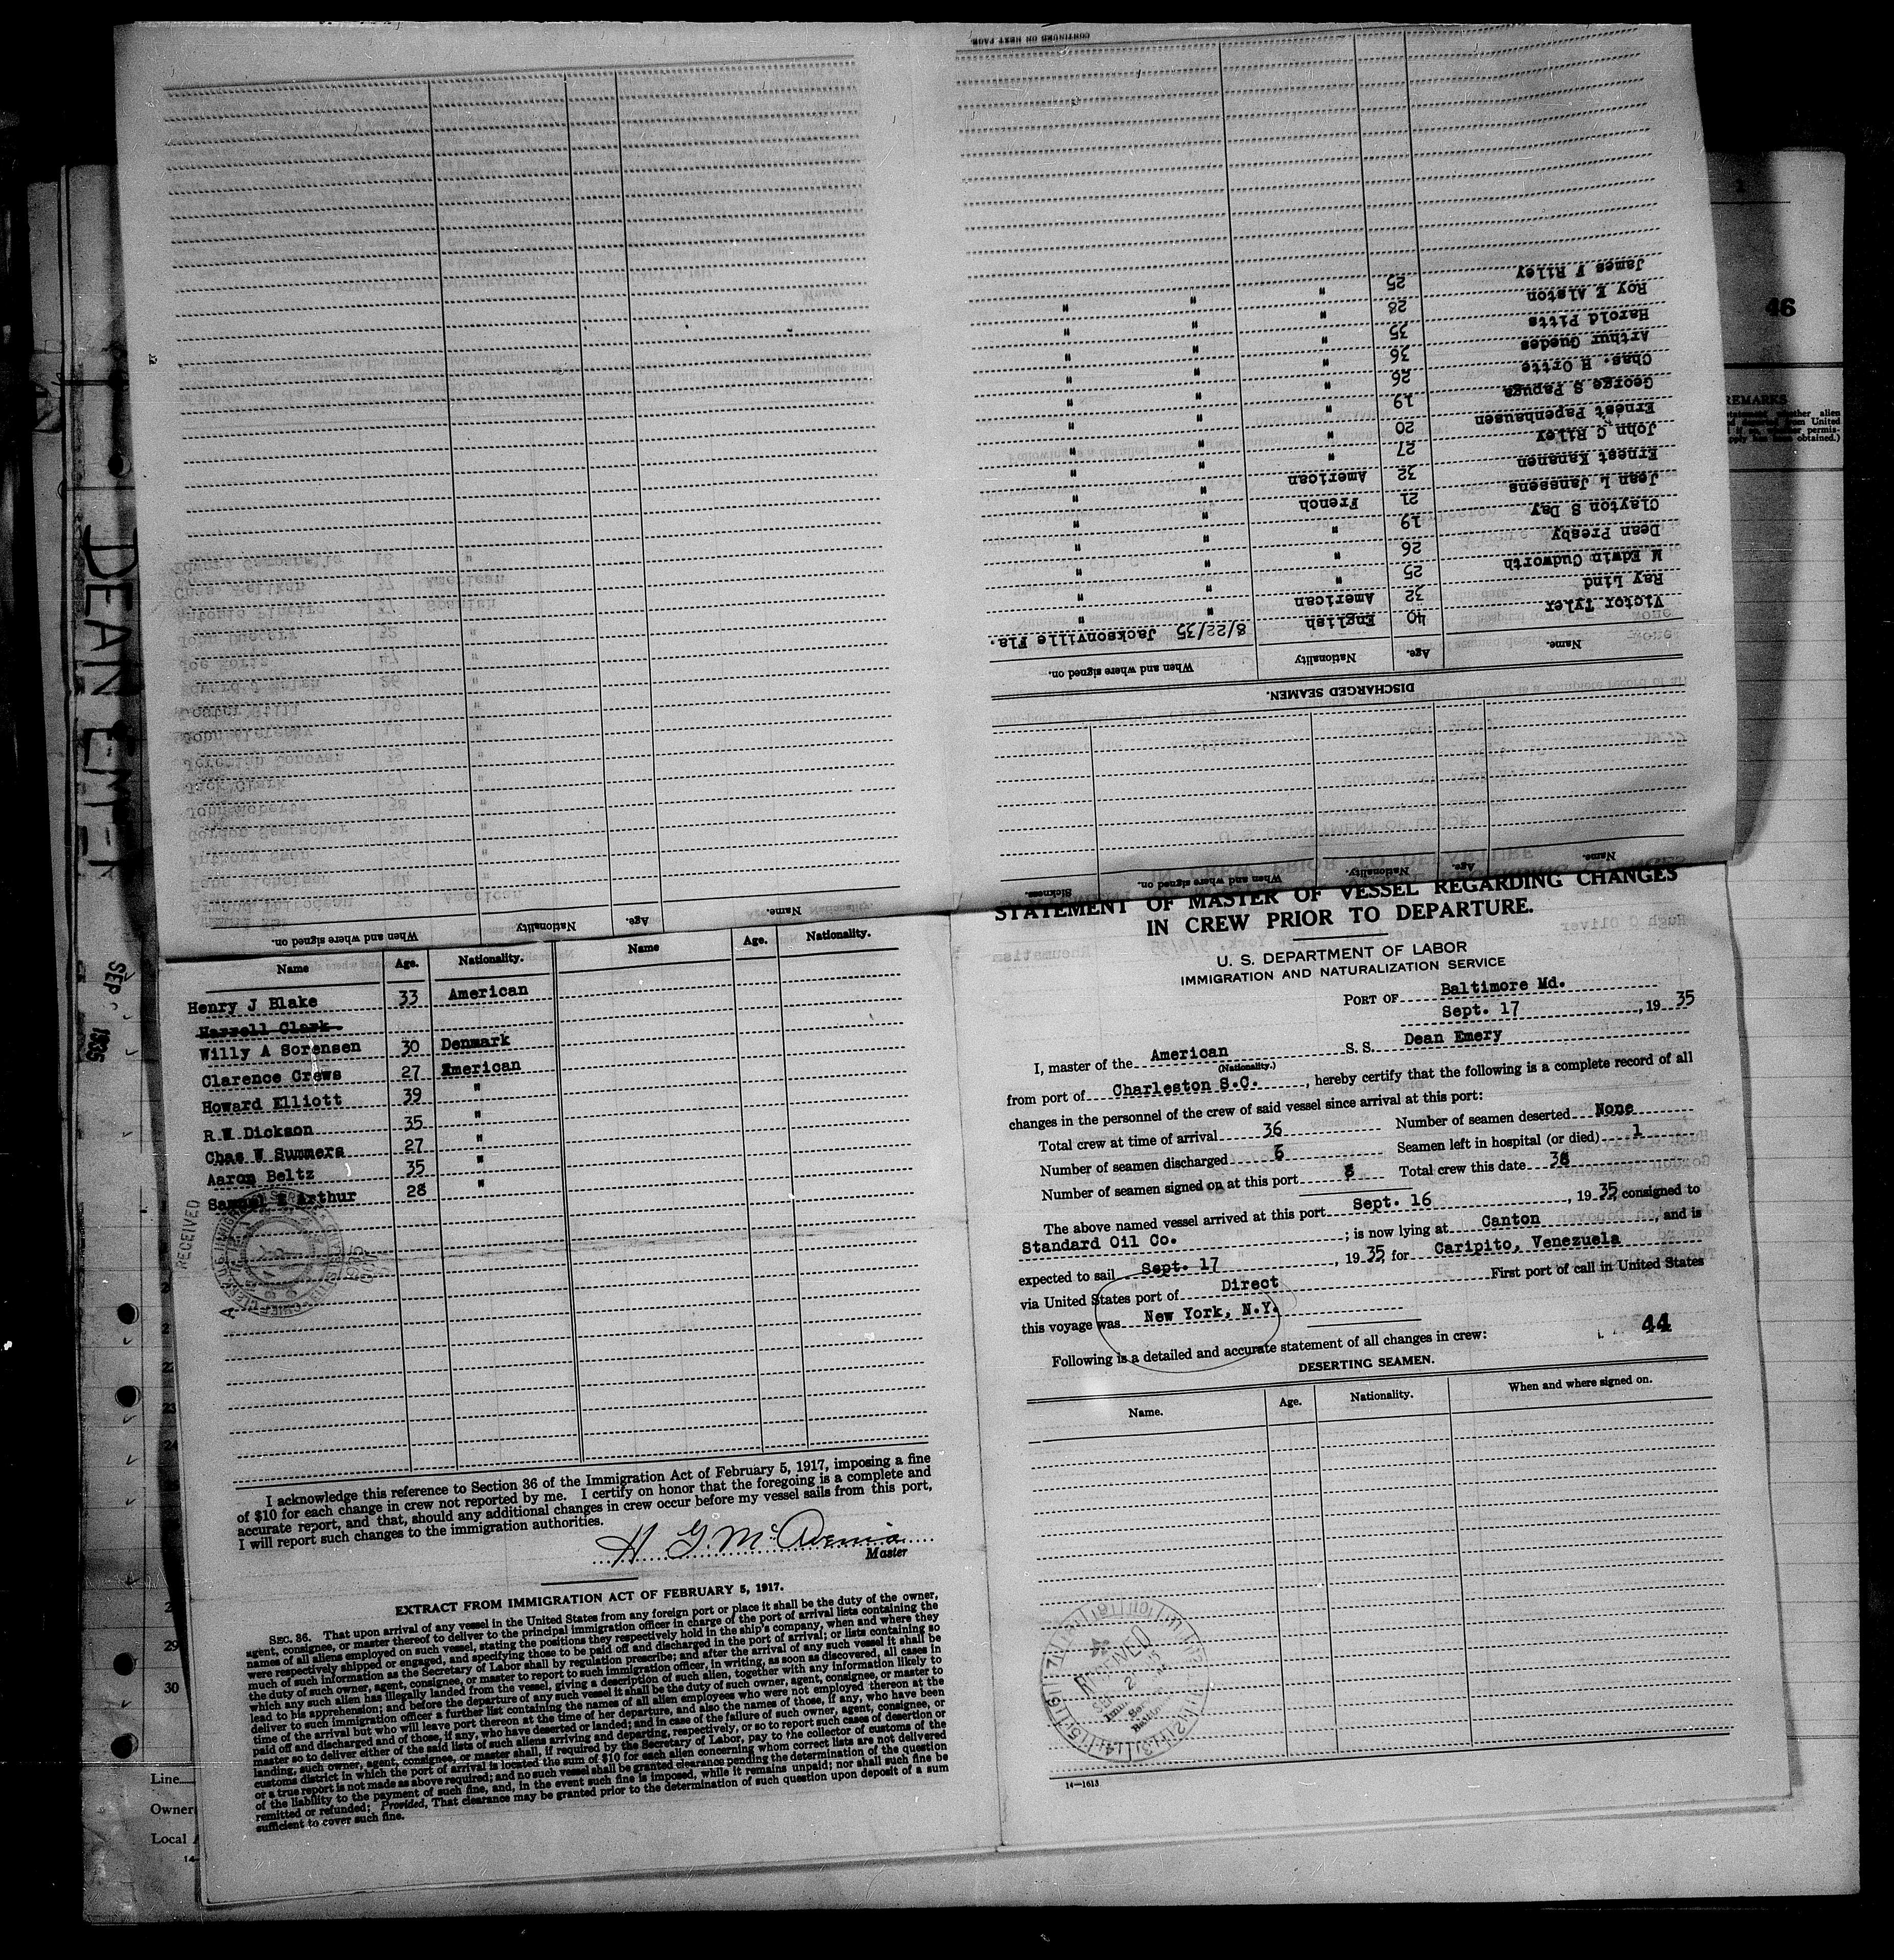 CONTINUED ON NEXT PAGE.
DISCHARGED SEAMEN.
Name. Age. Nationality When and where signed on.
Victor Tyler 40 English 8/22/35 Jacksonville Fla.
Ray Lind 32 American " "
M Edwin Cudworth 25 " " "
Dean Presby 26 " " "
Clayton S Day 19 " " "
Jean L Janssens 21 French " "
Ernest Kananen 32 American " "
John C Riley 27 " " "
Ernest Papenhausen 20 " " "
George S Papuga 19 " " "
Chas. H Ortte 26 " " "
Arthur Guedes 36 " " "
Harold Pitts 35 " " "
Roy E Alston 28 " " "
James F Riley 25 " " "
Name. Age. Nationality. When and where signed on. Sickness.
Name. Age. Nationality When and where signed on.
DEAN EMERY
SEP 1935
46
REMARKS
Name Age. Nationality. Name Age. Nationality.
Henry J Blake 33 American
Harrell Clark
Willy A Sorensen 30 Denmark
Clarence Crews 27 American
Howard Elliott 39 "
R.W Dickson 35 "
Chas W Summers 27 "
Aaron Beltz 35 "
Samuel Arthur 28 "
RECEIVED
I acknowledge this reference to Section 36 of the Immigration Act of February 5, 1917, imposing a fine
of $10 for each change in crew not reported by me. I certify on honor that the foregoing is a complete and
accurate report, and that, should any additional changes in crew occur before my vessel sails from this port,
I will report such changes to the immigration authorities.
Master
EXTRACT FROM IMMIGRATION ACT OF FEBRUARY 5, 1917.
SEC. 36. That upon arrival of any vessel in the United States from any foreign port or place it shall be the duty of the owner,
agent, consignee, or master thereof to deliver to the principal immigration officer in charge of the port of arrival lists containing the
names of all aliens employed on such vessel, stating the positions they respectively hold in the ship's company, when and where they
were respectively shipped or engaged, and specifying those to be paid off and discharged in the port of arrival; or lists containing so
much of such information as the Secretary of Labor shall by regulation prescribe; and after the arrival of any such vessel it shall be
the duty of such owner, agent, consignee, or master to report to such immigration officer, in writing, as soon as discovered, all cases in
which any such alien has illegally landed from the vessel, giving a description of such alien, together with any information likely to
lead to his apprehension; and before the departure of any such vessel it shall be the duty of such owner, agent, consignee, or master to
deliver to such immigration officer a further list containing the names of all alien employees who were not employed thereon at the
time of the arrival but who will leave port thereon at the time of her departure, and also the names of those, if any, who have been
paid off and discharged and of those, if any, who have deserted or landed; and in case of the failure of such owner, agent, consignee, or
master so to deliver either of the said lists of such aliens arriving and departing, respectively, or so to report such cases of desertion or
landing, such owner, agent, consignee, or master shall, if required by the Secretary of Labor, pay to the collector of customs of the
customs district in which the port of arrival is located the sum of $10 for each alien concerning whom correct lists are not delivered
or a true report is not made as above required; and no such vessel shall be granted clearance pending the determination of the question
of the liability to the payment of such fine, and, in the event such fine is imposed, while it remains unpaid; nor shall such fine be
remitted or refunded; Provided, That clearance may be granted prior to the determination of such question upon deposit of a sum
sufficient to cover such fine.
STATEMENT OF MASTER OF VESSEL REGARDING CHANGES
IN CREW PRIOR TO DEPARTURE.
U. S. DEPARTMENT OF LABOR
IMMIGRATION AND NATURALIZATION SERVICE
PORT OF Baltimore Md.
Sept. 17, 1935
I, master of the American S. S. Dean Emery
(Nationality.)
from port of Charleston S.C., hereby certify that the following is a complete record of all
changes in the personnel of the crew of said vessel since arrival at this port:
Total crew at time of arrival 36 Number of seamen deserted None
Number of seamen discharged 6 Seamen left in hospital (or died) 1
Number of seamen signed on at this port 8 Total crew this date 38
The above named vessel arrived at this port Sept. 16, 1935, consigned to
Standard Oil Co.; is now lying at Canton, and is
expected to sail Sept. 17, 1935, for Caripito, Venezuela
via United States port of Direct First port of call in United States
this voyage was New York, N.Y.
44
Following is a detailed and accurate statement of all changes in crew:
DESERTING SEAMEN.
Name. Age. Nationality. When and where signed on.
RECEIVED
14—1613
29
30
Line
Owner
Local
14—